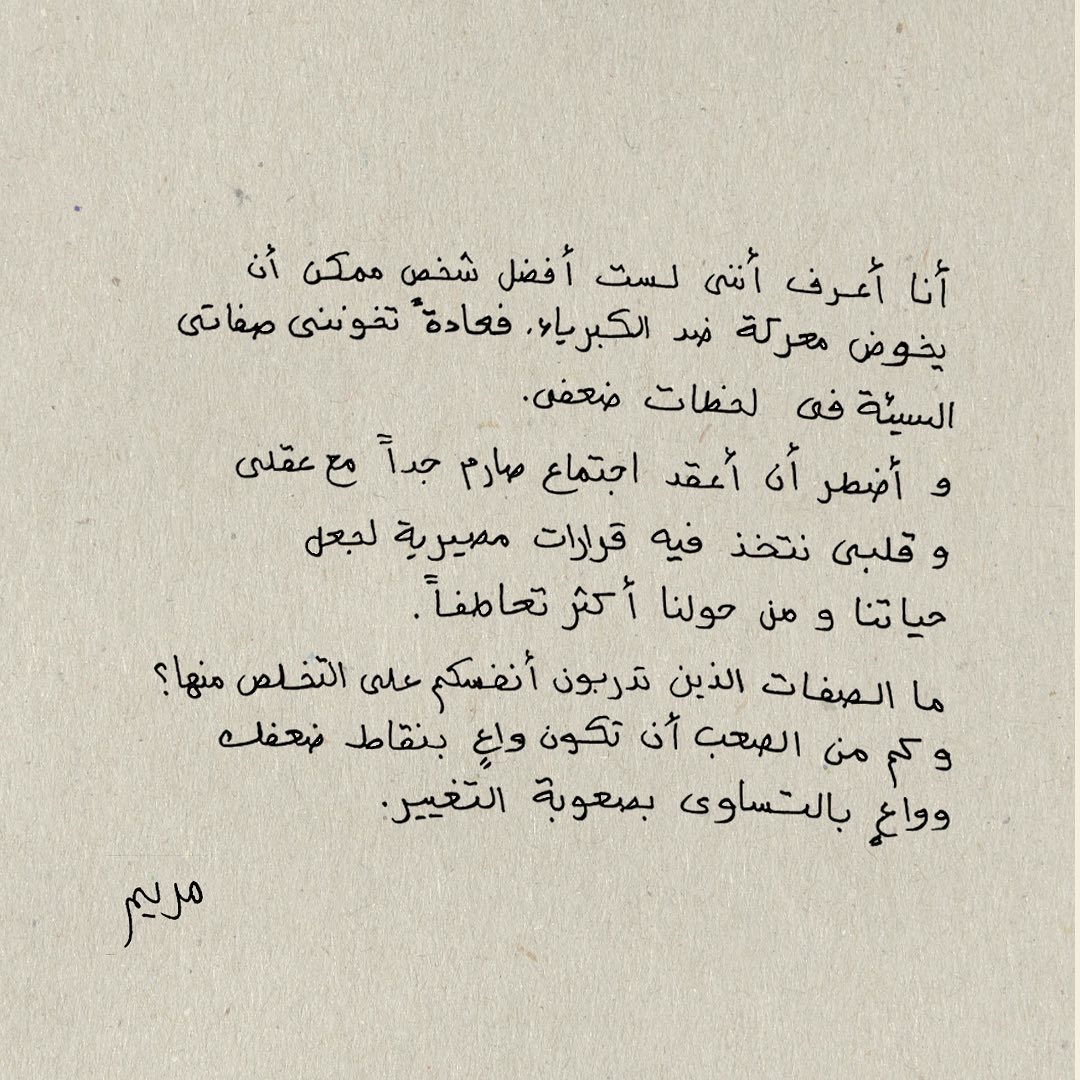 أنا أعرف أننى لست أفضل شخص ممكن أن
يخوض معركة ضد الكبرياء، فعادةً تخوننى صفاتى
السيئة فى لحظات ضعفى.
و أضطر أن أعقد اجتماع صارم جداً مع عقلى
و قلبى نتخذ فيه قرارات مصيرية لجعل
حياتنا و من حولنا أكثر تعاطفاً.
ما الصفات الذين تدربون أنفسكم على التخلص منها؟
و كم من الصعب أن تكون واعٍ بنقاط ضعفك
وواعٍ بالتساوى بصعوبة التغيير.
مريم